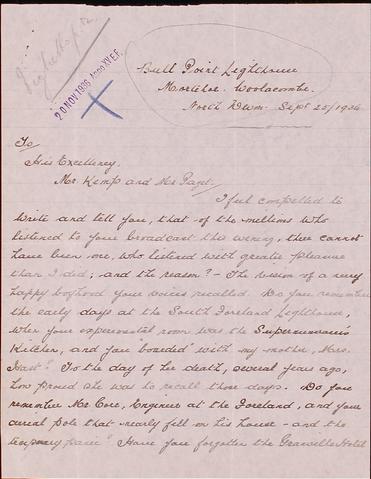 20 NOV 1936 Anno XV E.F.
Bull Point Lighthouse
Mortehoe. Woolacombe.
North Devon. Sept 25/1936
To
His Excellency.
Mr. Kemp and Mr Paget.
I feel compelled to
write and tell you, that of the millions who
listened to your broadcast this evening, there cannot
have been one, who listened with greater pleasure
than I did; and the reason? - The vision of a very
happy boyhood your voices recalled. Do you remember
the early days at the South Foreland Lighthouse,
when your experimental room was the Supernumerary's
Kitchen, and you "boarded" with my mother, Mrs.
Hast? To the day of her death, several years ago,
how proud she was to recall those days. Do you
remember Mr Core, Engineer at the Foreland, and your
aerial pole that nearly fell on his house - and the
temporary panic? Have you forgotten the Granville Hotel